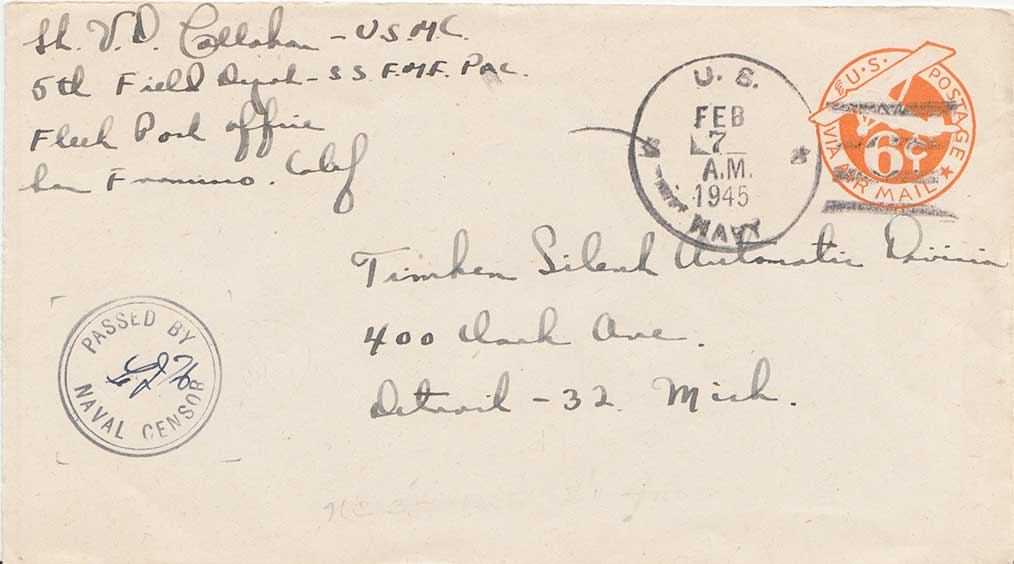 Lt. V. D. Callahan - U.S.M.C.
5th Field Depot - S S F.M.F. Pac.
Fleet Post office
San Francisco. Calif
U. S.
FEB
7
A.M.
1945
NAVY
U.S. POSTAGE
6¢
VIA AIR MAIL
Timken Silent Automatic Division
400 Clark Ave.
Detroit - 32. Mich.
PASSED BY
NAVAL CENSOR